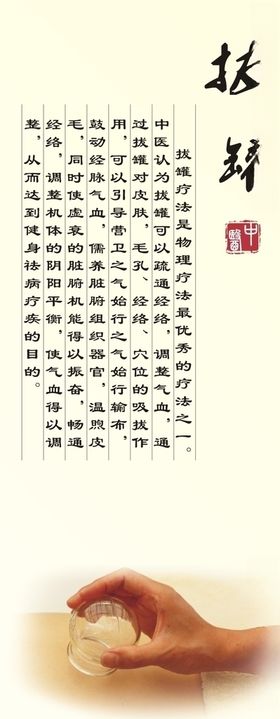 拔罐
中醫
拔罐疗法是物理疗法最优秀的疗法之一。
中医认为拔罐可以疏通经络，调整气血，通
过拔罐对皮肤，毛孔、经络、穴位的吸拔作
用，可以引导营卫之气始行之气始行输布，
鼓动经脉气血，儒养脏腑组织器官，温煦皮
毛，同时使虚衰的脏腑机能得以振奋，畅通
经络，调整机体的阴阳平衡，使气血得以调
整，从而达到健身祛病疗疾的目的。